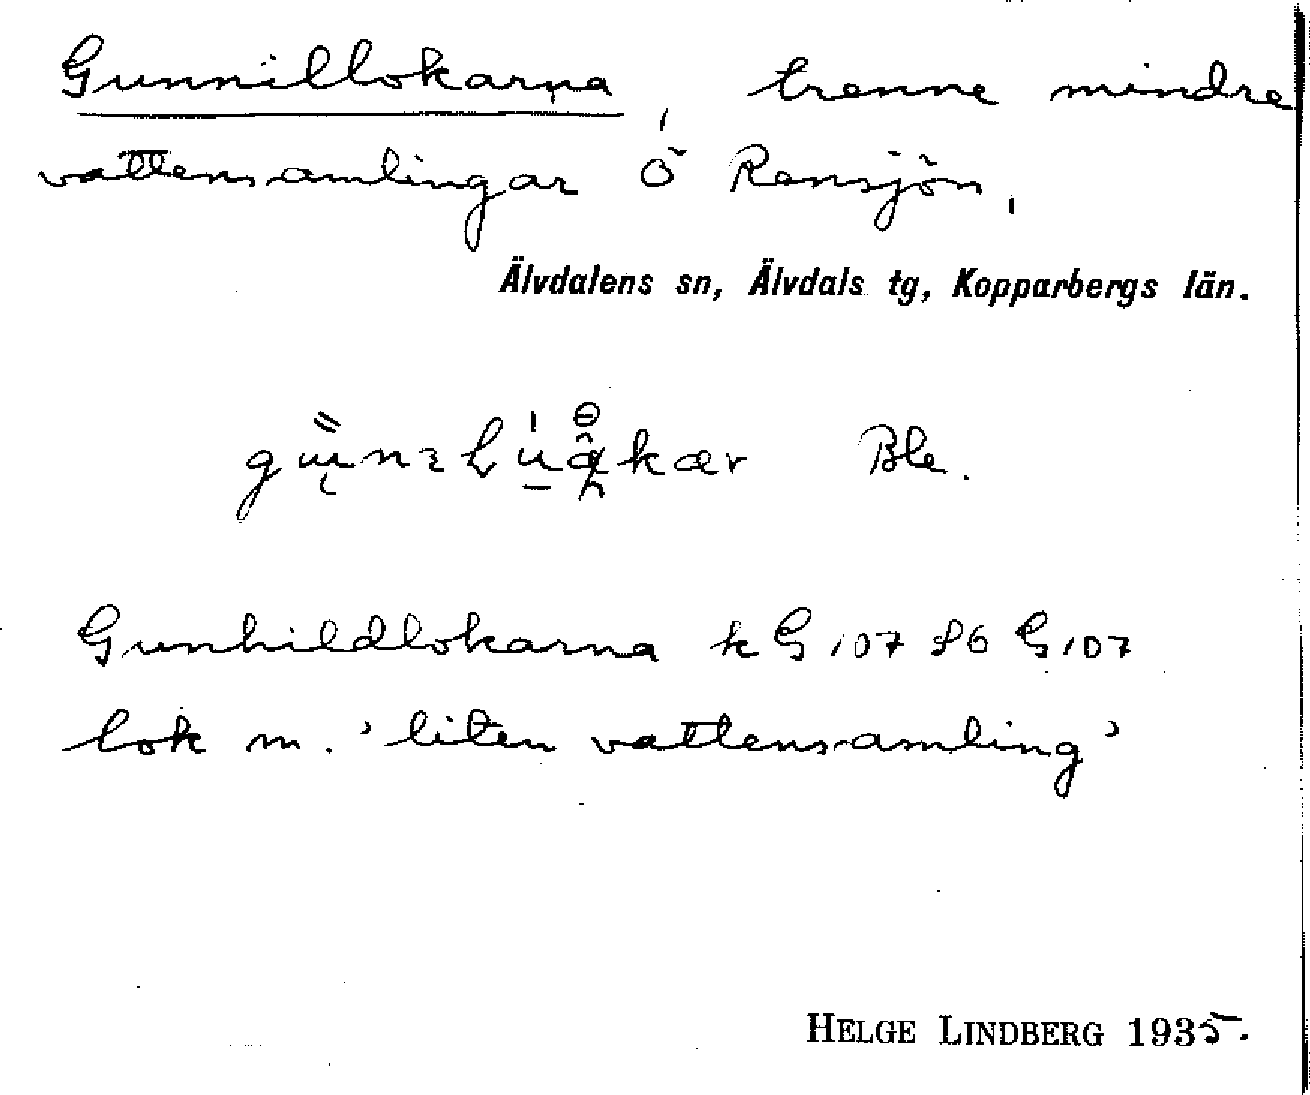 Gunnillokarna, trenne mindre
vattensamlingar Ö Rensjön,
Älvdalens sn, Älvdals tg, Kopparbergs län.
Ble.
Gunhildlokarna k G107 S6 G107
lok m. 'liten vattensamling'
HELGE LINDBERG 1935.